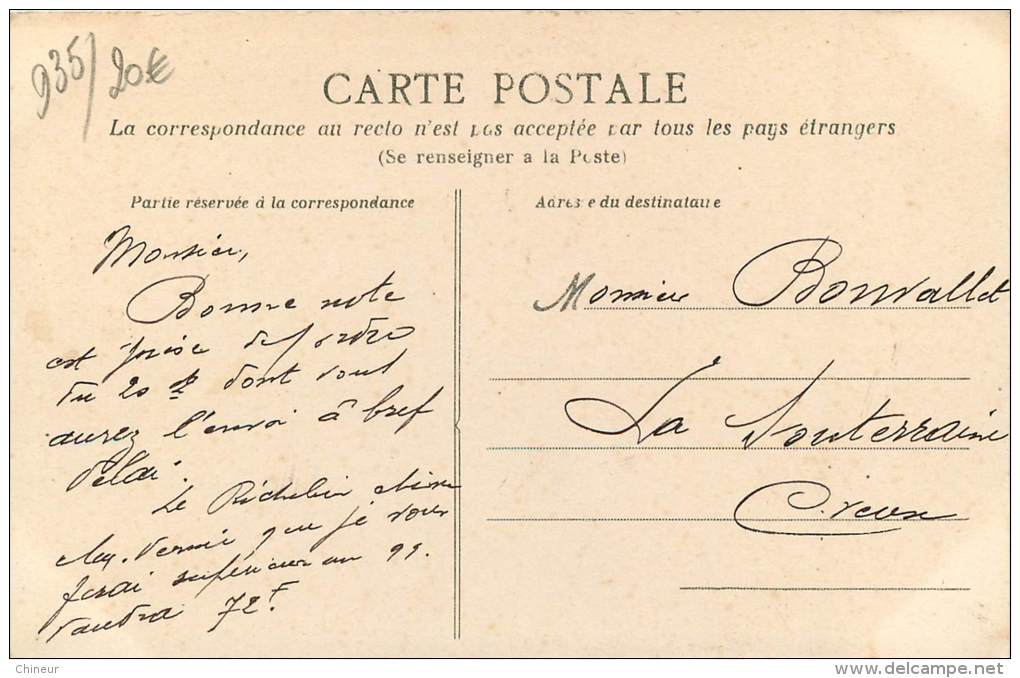 935/ 20€
CARTE POSTALE
La correspondance au recto n'est pas acceptée par tous les pays étrangers
(Se renseigner a la Poste)
Partie réservée à la correspondance
Adresse du destinataire
Monsieur,
Bonne note
est prise de
du 20 dont vous
aurez l'envoi à bref
délai.
Le Richelieu
que je vous
ferai supérieur au 99.
vaudra 72F.
Monsieur Bonvallet
La Souterraine
Creuse
Chineur
delcampe.net